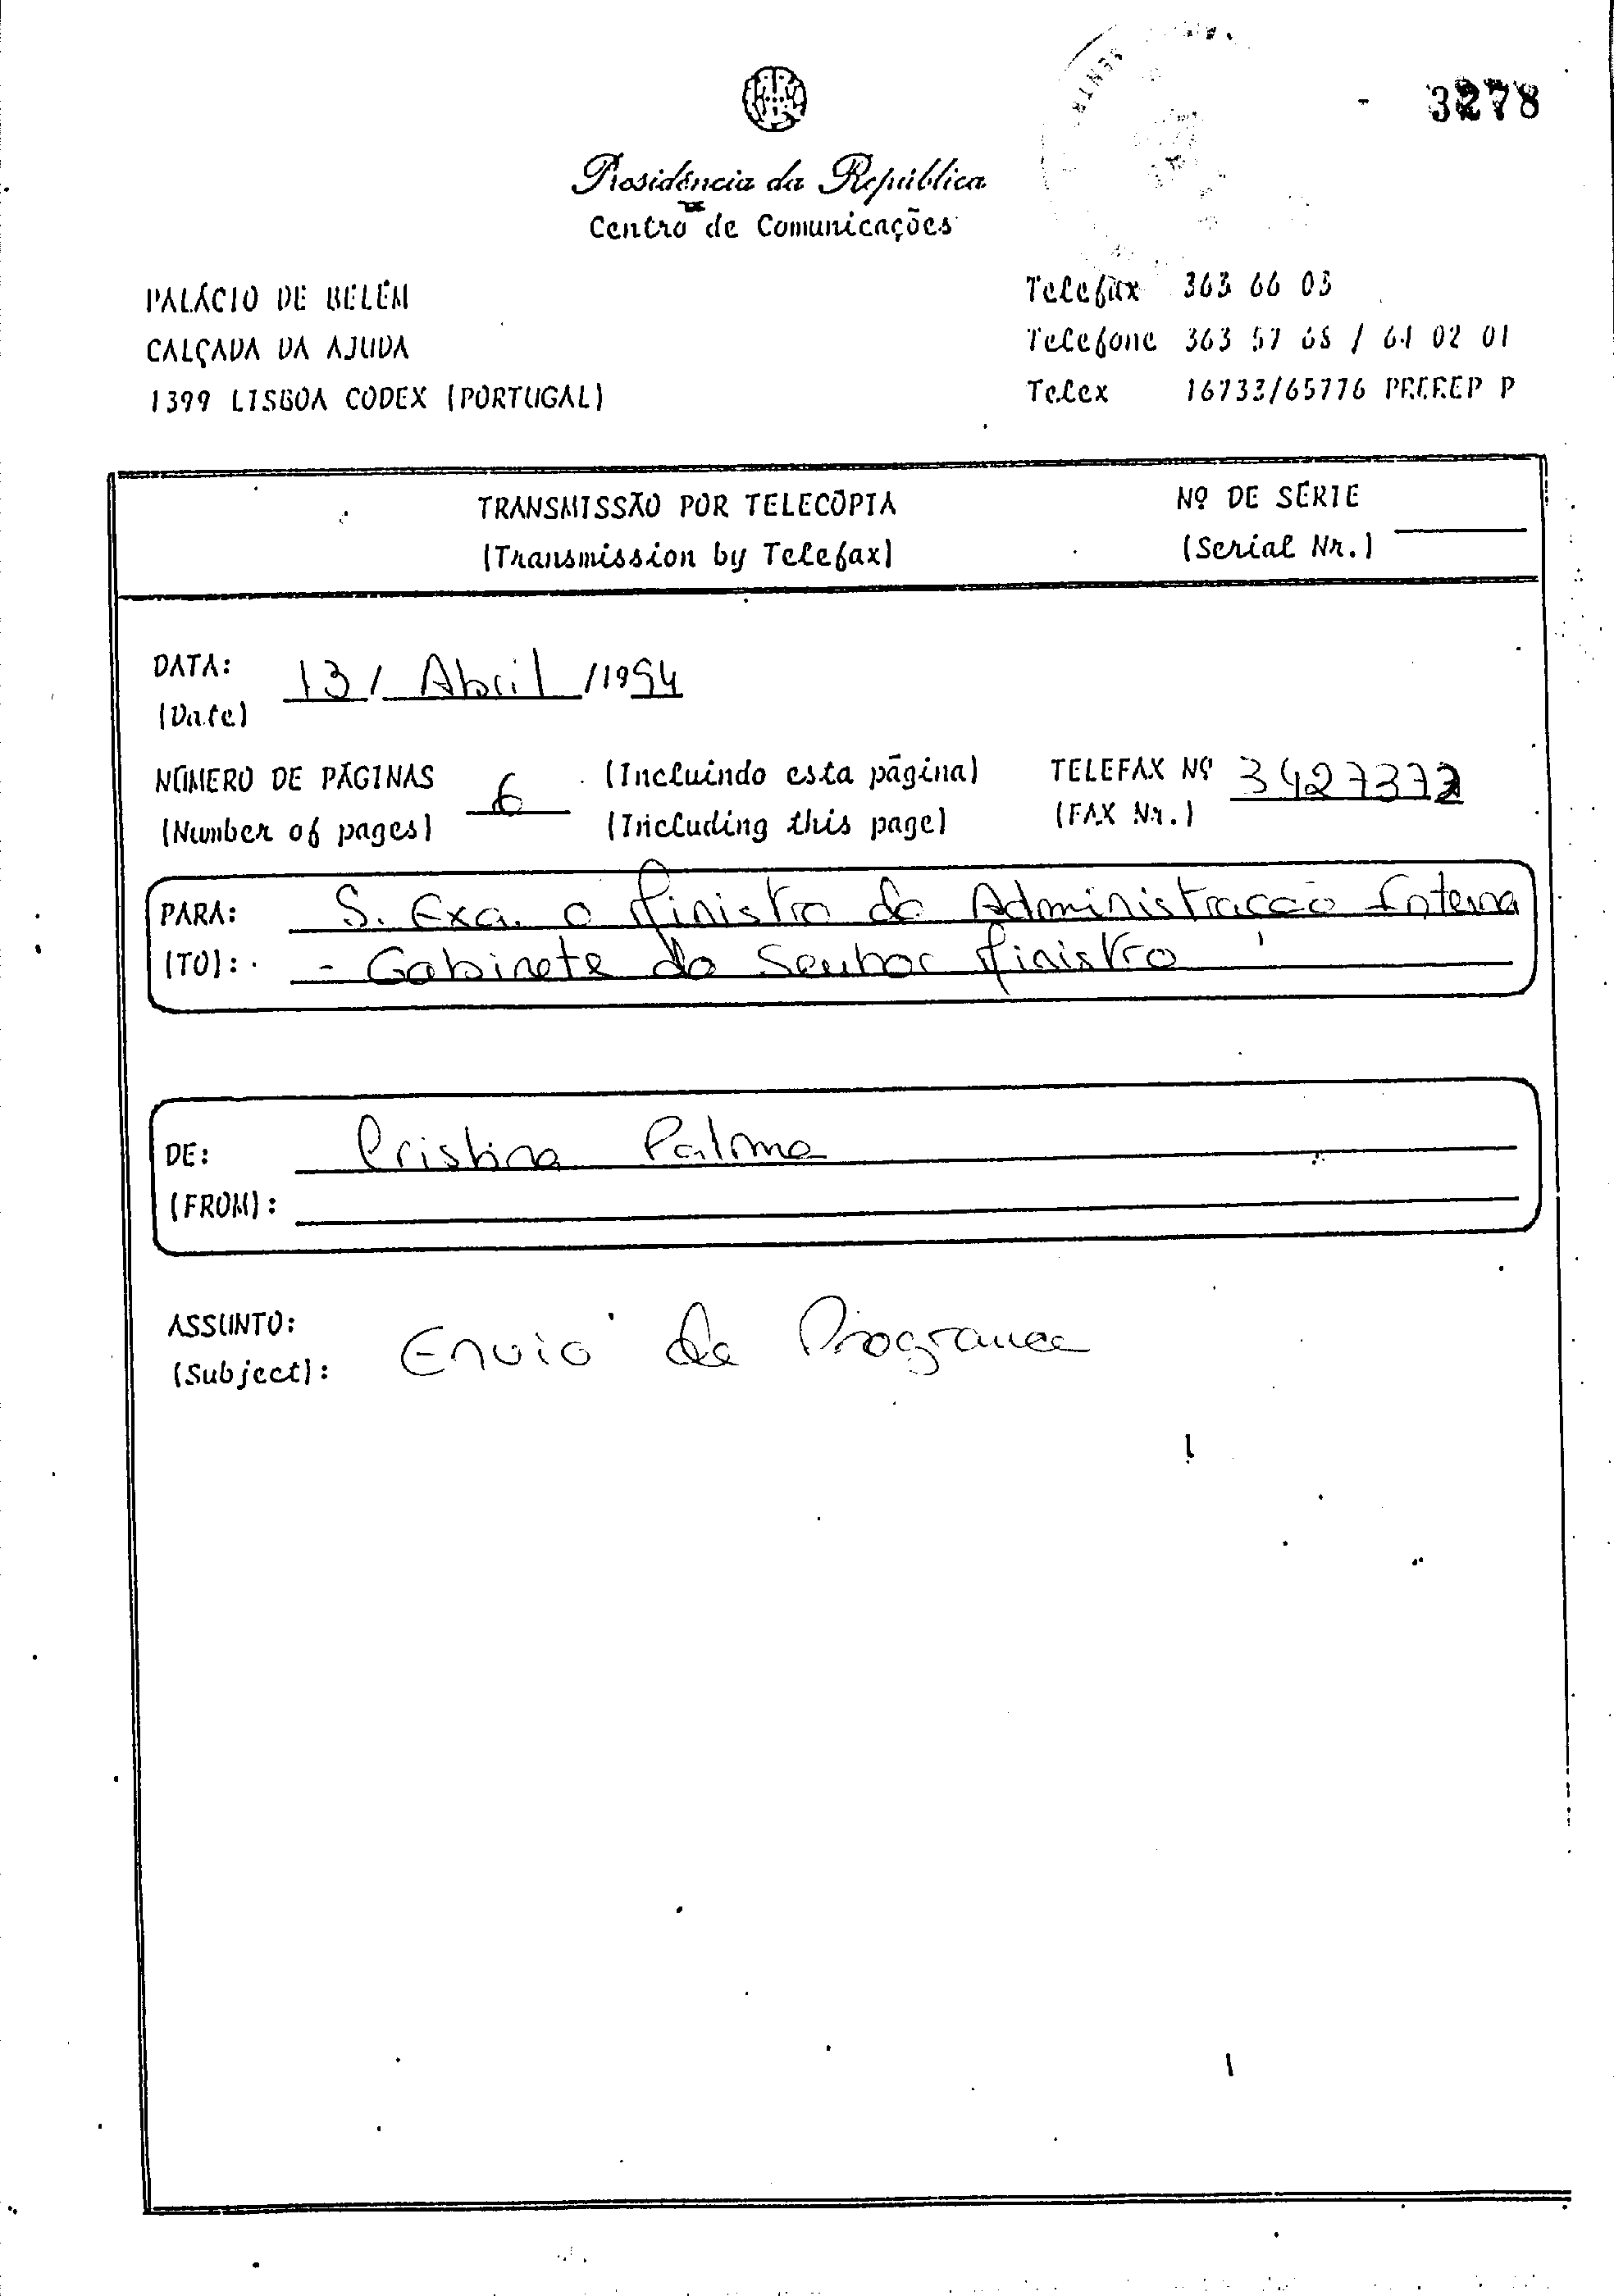 3278
Presidência da República
Centro de Comunicações
PALÁCIO DE BELÉM
CALÇADA DA AJUDA
1399 LISBOA CODEX (PORTUGAL)
Telefax 363 66 03
Telefone 363 57 68 / 64 02 01
Telex 16733/65776 PREREP P
TRANSMISSÃO POR TELECÓPIA
(Transmission by Telefax)
Nº DE SÉRIE
(Serial Nr.)
DATA: 13 / Abril / 1994
(Date)
NÚMERO DE PÁGINAS 6 (Incluindo esta página) TELEFAX Nº 3427372
(Number of pages) (Including this page) (FAX Nr.)
PARA: S. Exa. o Ministro da Administração Interna
(TO): - Gabinete do Senhor Ministro
DE: Cristina Palma
(FROM):
ASSUNTO: Envio de Programa
(Subject):